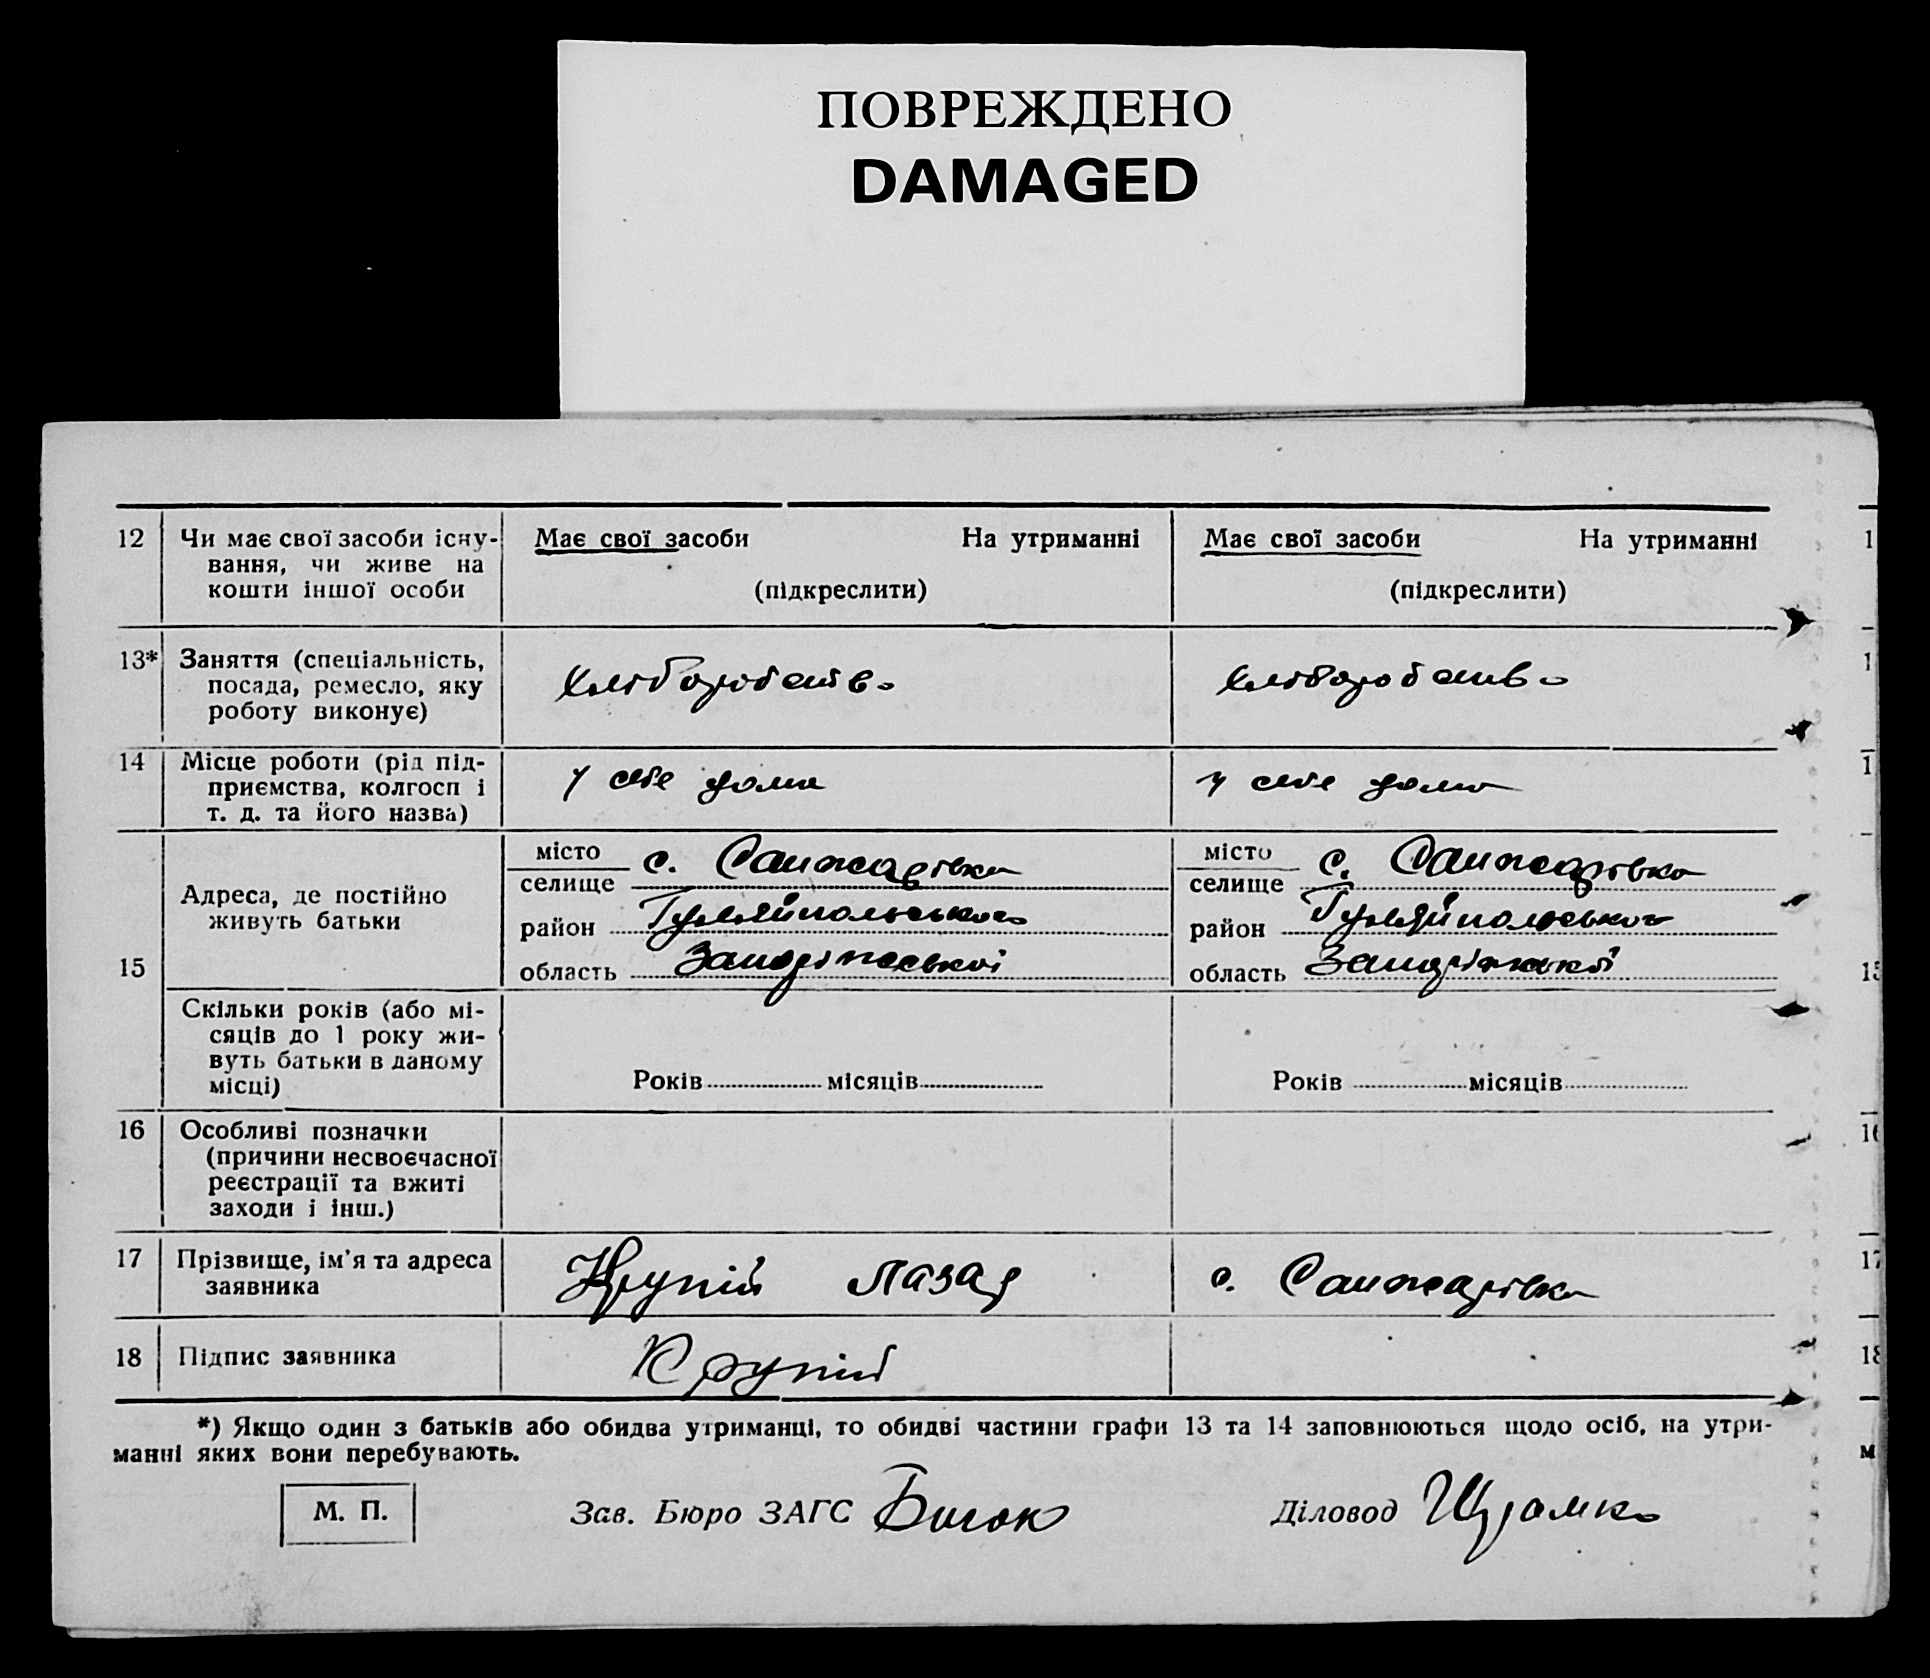 ПОВРЕЖДЕНО
DAMAGED
12 Чи має свої засоби існу-
вання, чи живе на
кошти іншої особи
Має свої засоби На утриманні
(підкреслити)
Має свої засоби На утриманні
(підкреслити)
1
13* Заняття (спеціальність,
посада, ремесло, яку
роботу виконує)
хліборобство
хліборобство
1
14 Місце роботи (рід під-
приємства, колгосп і
т. д. та його назва)
у себе дома
у себе дома
1
15
Адреса, де постійно
живуть батьки
місто
селище с. Санжарівка
район Гуляйпольського
область Запоріжської
місто
селище с. Санжарівка
район Гуляйпольського
область Запоріжської
15
Скільки років (або мі-
сяців до 1 року жи-
вуть батьки в даному
місці)
Років місяців
Років місяців
16 Особливі позначки
(причини несвоєчасної
реєстрації та вжиті
заходи і інш.)
16
17 Прізвище, ім'я та адреса
заявника
Крупій Лазар
с. Санжарівка
17
18 Підпис заявника
Крупій
18
*) Якщо один з батьків або обидва утриманці, то обидві частини графи 13 та 14 заповнюються щодо осіб, на утри-
манні яких вони перебувають.
м
М. П.
Зав. Бюро ЗАГС
Діловод